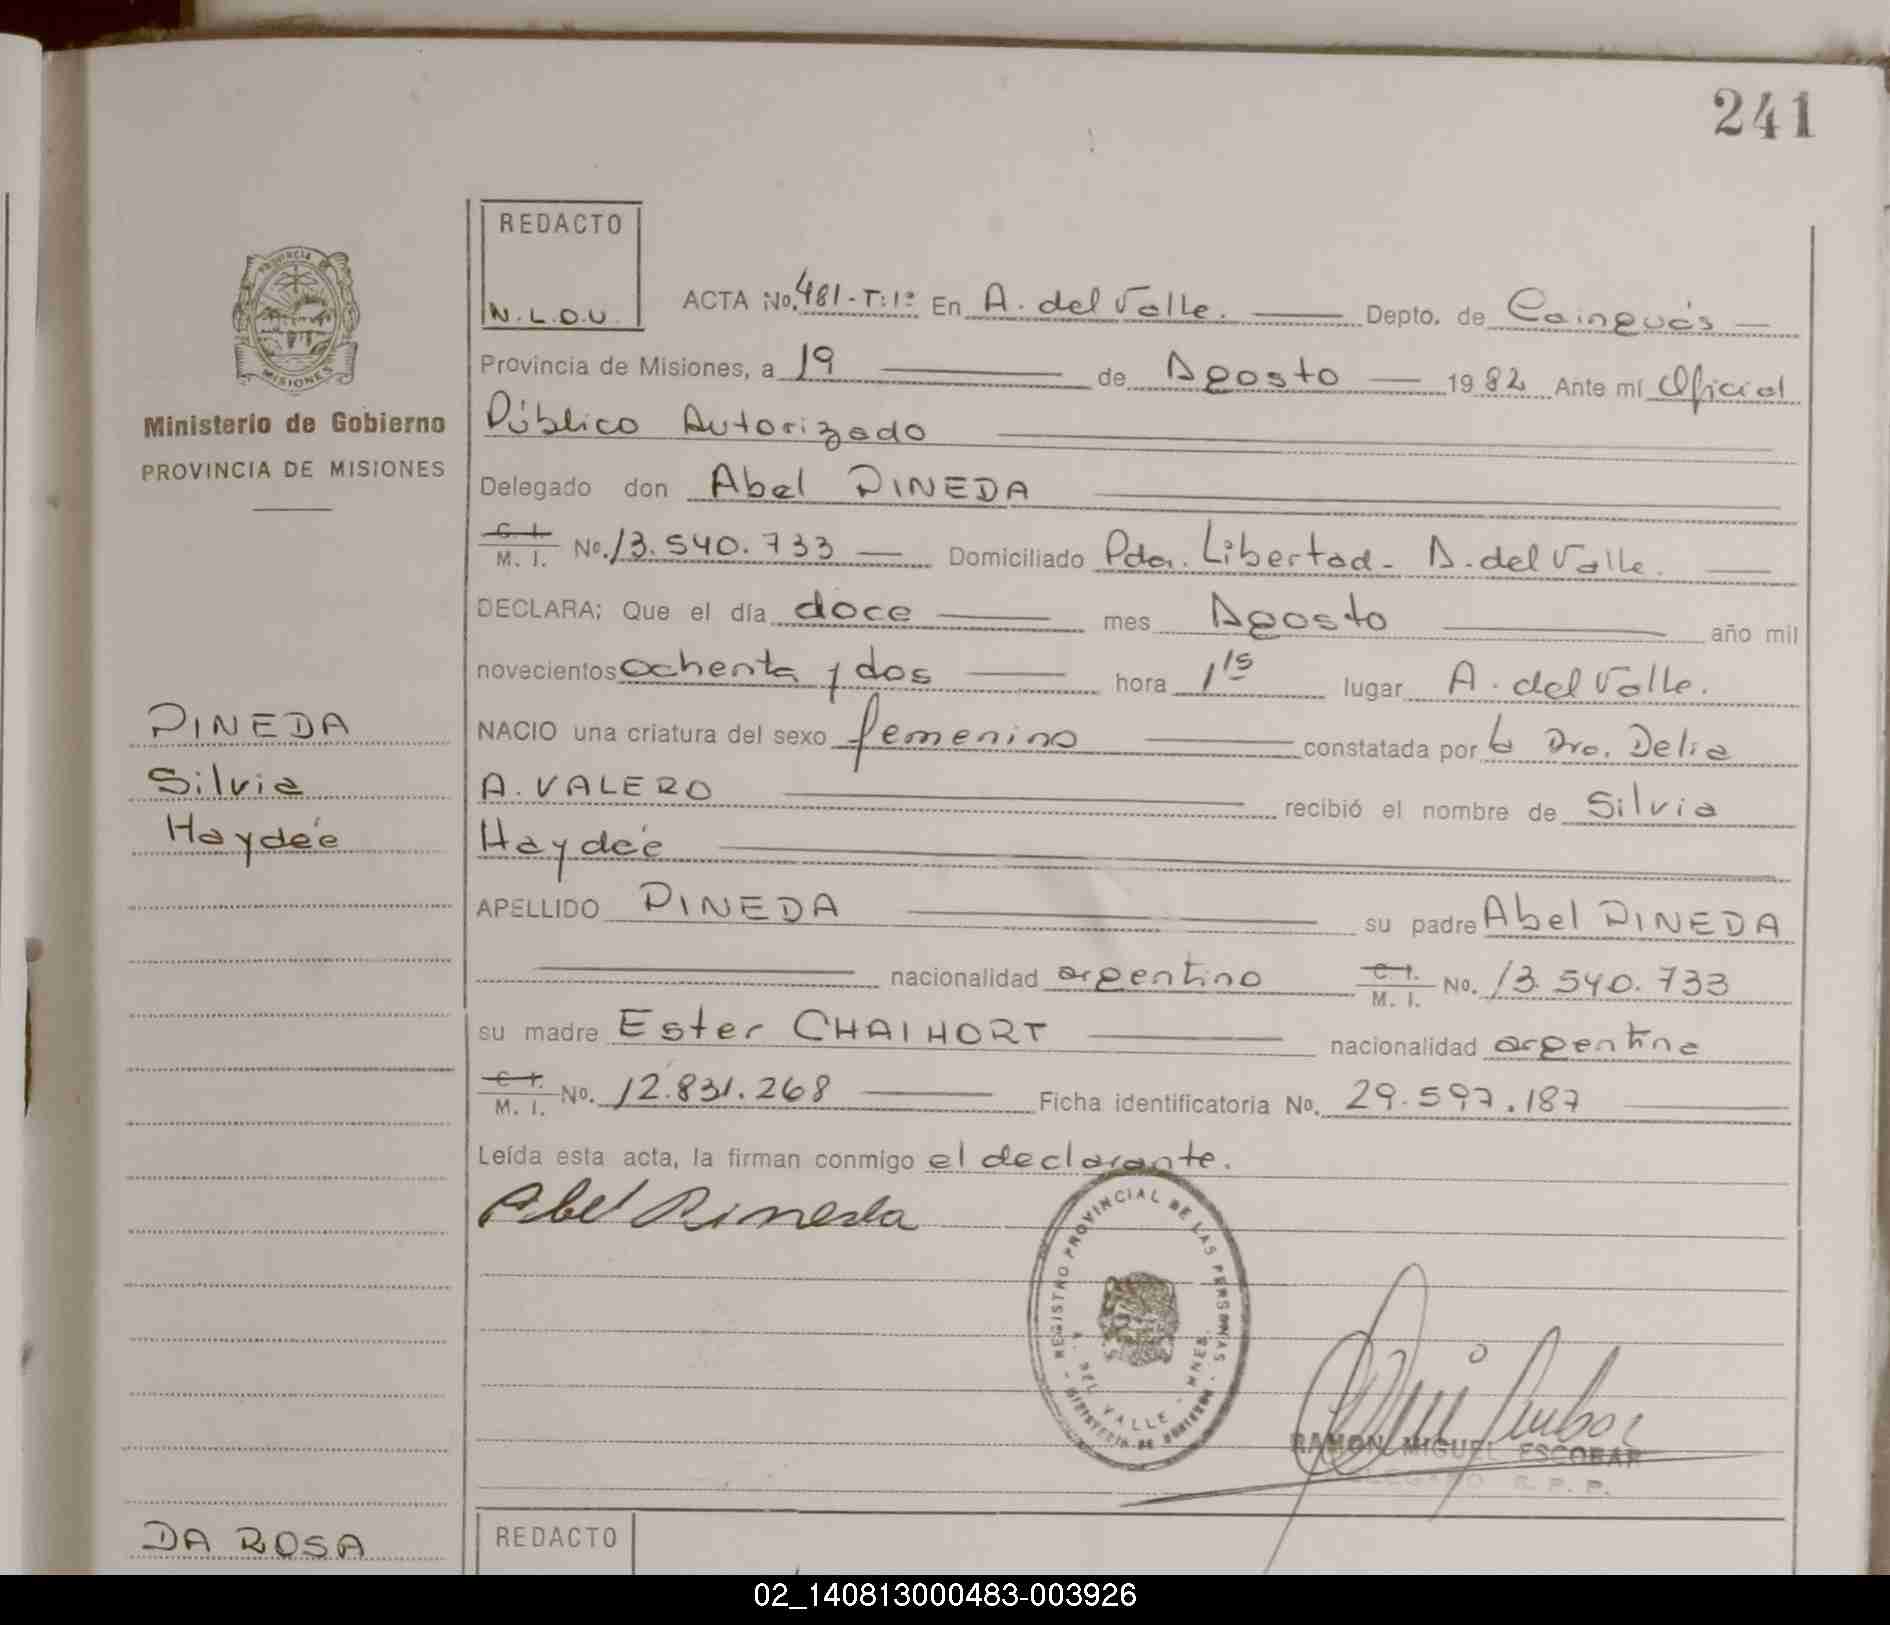 241
REDACTO
N.L.O.U.
PROVINCIA DE
MISIONES
Ministerio de Gobierno
PROVINCIA DE MISIONES
ACTA No. 481-T:1º En A. del Valle. Depto. de Cainguás
Provincia de Misiones, a 19 de Agosto 1982 Ante mí Oficial
Público Autorizado
Delegado don Abel PINEDA
C. I.
M. I. No. 13.540.733 Domiciliado Pda. Libertad - A. del Valle.
DECLARA; Que el día doce mes Agosto año mil
novecientos ochenta y dos hora 1 15 lugar A. del Valle.
PINEDA
Silvia
Haydée
NACIO una criatura del sexo femenino constatada por la Dra. Delia
A. VALERO recibió el nombre de Silvia
Haydée
APELLIDO PINEDA su padre Abel PINEDA
nacionalidad argentino C. I.
M. I. No. 13.540.733
su madre Ester CHAIHORT nacionalidad argentina
C. I.
M. I. No. 12.831.268 Ficha identificatoria No. 29.597.187
Leída esta acta, la firman conmigo el declarante.
Abel Pineda
REGISTRO PROVINCIAL DE LAS PERSONAS
A. DEL VALLE - MNES.
MINISTERIO DE GOBIERNO
RAMON MIGUEL ESCOBAR
DELEGADO R. P. P.
DA ROSA
REDACTO
02_140813000483-003926